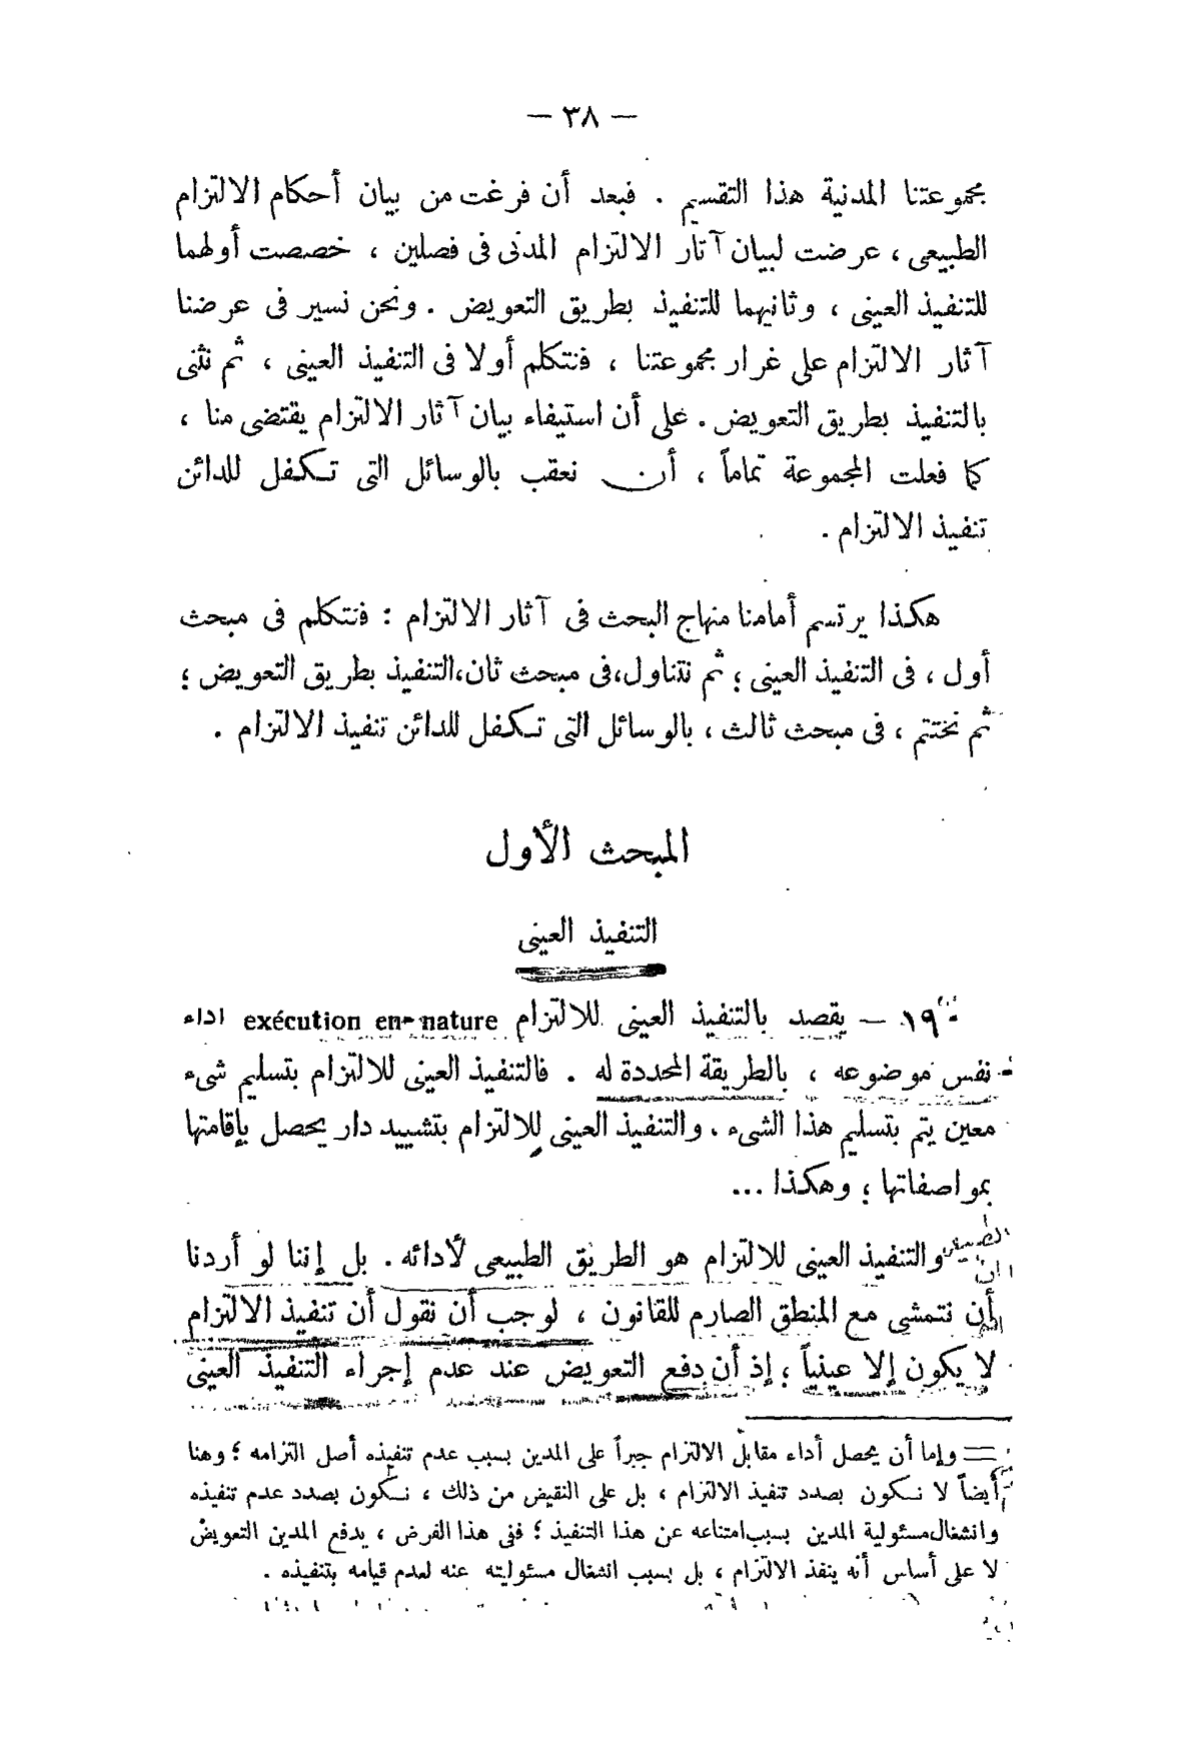 — ٣٨ —
مجموعتنا المدنية هذا التقسيم . فبعد أن فرغت من بيان أحكام الالتزام
الطبيعى ، عرضت لبيان آثار الالتزام المدنى فى فصلين ، خصصت أولهما
للتنفيذ العينى ، وثانيهما للتنفيذ بطريق التعويض . ونحن نسير فى عرضنا
آثار الالتزام على غرار مجموعتنا ، فنتكلم أولا فى التنفيذ العينى ، ثم نثنى
بالتنفيذ بطريق التعويض . على أن استيفاء بيان آثار الالتزام يقتضى منا ،
كما فعلت المجموعة تماماً ، أن نعقب بالوسائل التى تكفل للدائن
تنفيذ الالتزام .
هكذا يرتسم أمامنا منهاج البحث فى آثار الالتزام : فنتكلم فى مبحث
أول ، فى التنفيذ العينى ؛ ثم نتناول،فى مبحث ثان،التنفيذ بطريق التعويض ؛
ثم نختتم ، فى مبحث ثالث ، بالوسائل التى تكفل للدائن تنفيذ الالتزام .
المبحث الأول
التنفيذ العينى
١٩ — يقصد بالتنفيذ العينى للالتزام exécution en nature اداء
نفس موضوعه ، بالطريقة المحددة له . فالتنفيذ العينى للالتزام بتسليم شىء
معين يتم بتسليم هذا الشىء . والتنفيذ العينى للالتزام بتشييد دار يحصل بإقامتها
بمواصفاتها ؛ وهكذا ...
والتنفيذ العينى للالتزام هو الطريق الطبيعى لأدائه . بل إننا لو أردنا
أن نتمشى مع المنطق الصارم للقانون ، لوجب أن نقول أن تنفيذ الالتزام
لا يكون إلا عينياً ؛ إذ أن دفع التعويض عند عدم إجراء التنفيذ العينى
= وإما أن يحصل أداء مقابل الالتزام جبراً على المدين بسبب عدم تنفيذه أصل التزامه ؛ وهنا
أيضاً لا نكون بصدد تنفيذ الالتزام ، بل على النقيض من ذلك ، نكون بصدد عدم تنفيذه
وانشغال مسئولية المدين بسبب امتناعه عن هذا التنفيذ ؛ ففى هذا الفرض ، يدفع المدين التعويض
لا على أساس أنه ينفذ الالتزام ، بل بسبب انشغال مسئوليته عنه لعدم قيامه بتنفيذه .